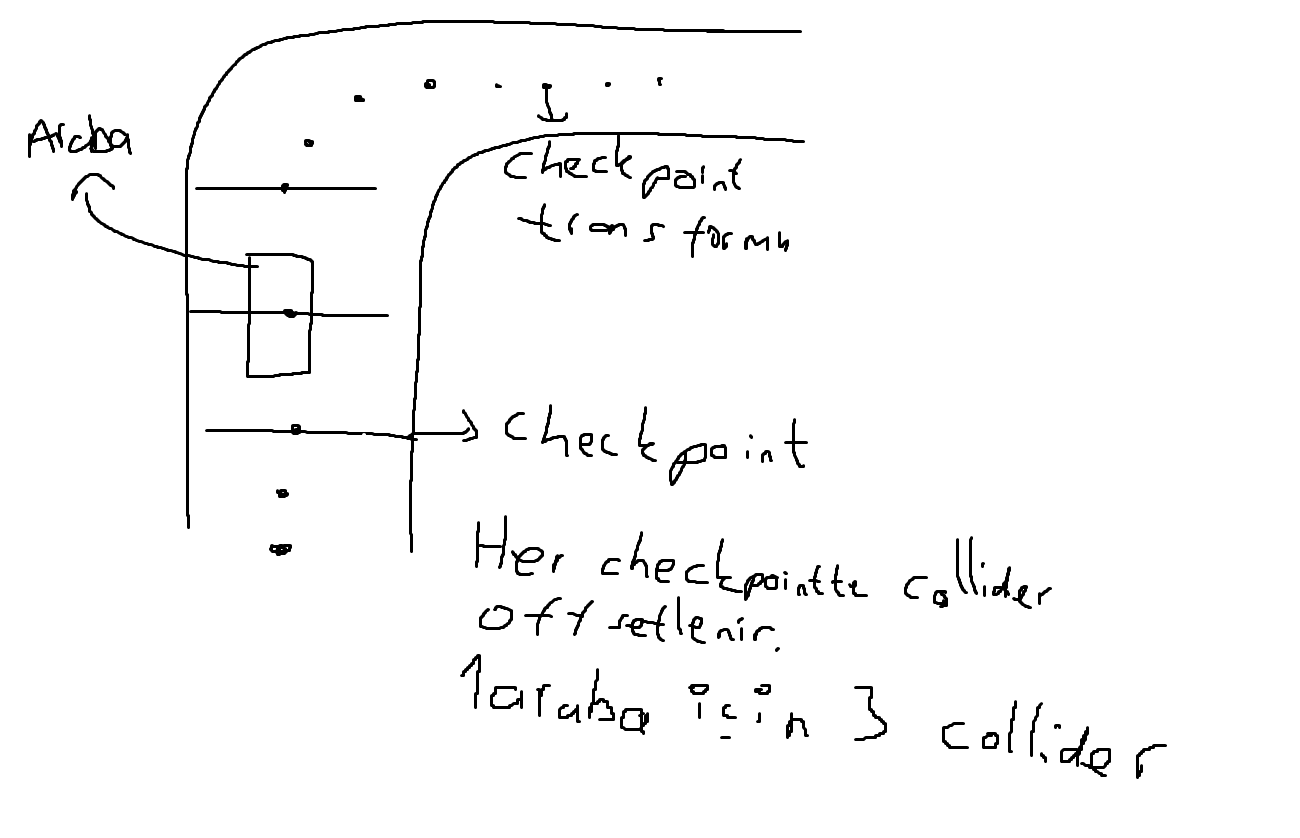 Araba
Checkpoint
transformu
Checkpoint
Her checkpointte collider
offsetlenir.
1 araba için 3 collider